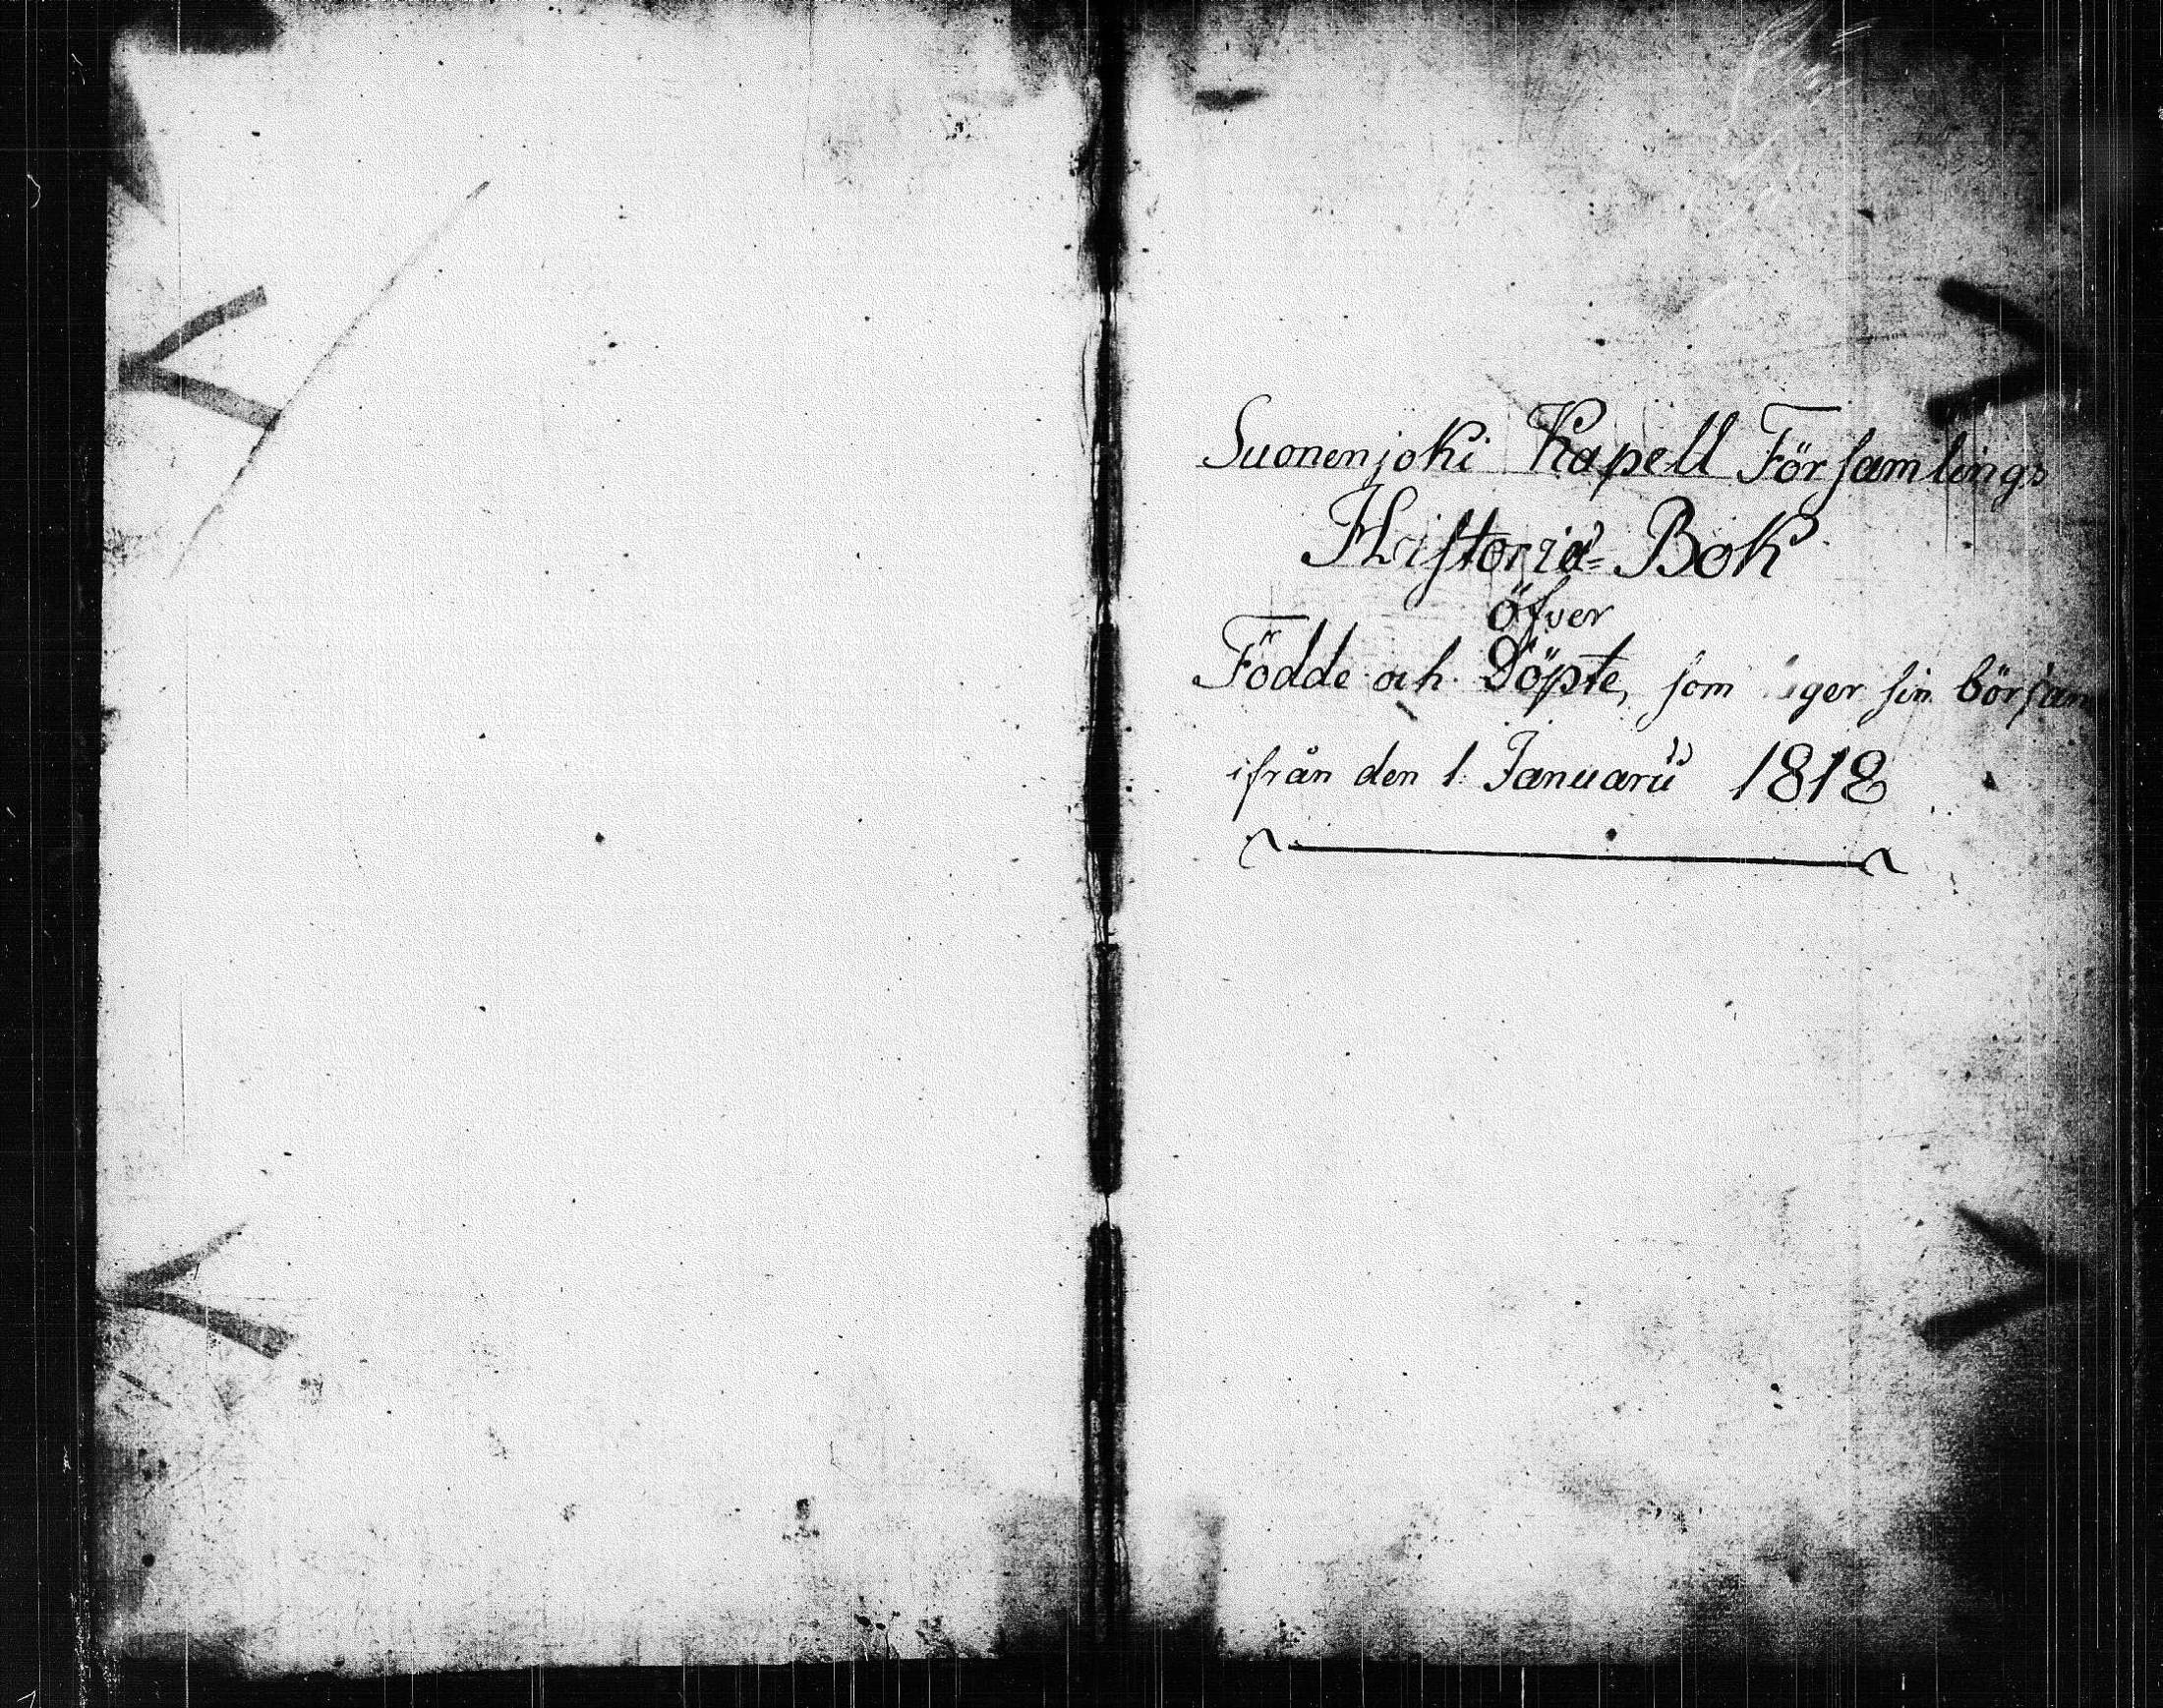 Suonenjoki Kapell Församlings
Historiæ= Bok
öfver
Födde och Döpte, som äger sin början
ifrån den 1. Januarii 1818